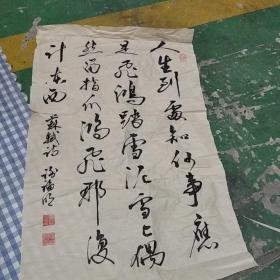 人生到處知何事應
是飛鴻踏雪泥雪上偶
然留指爪鴻飛那復
計东西
蘇軾詩